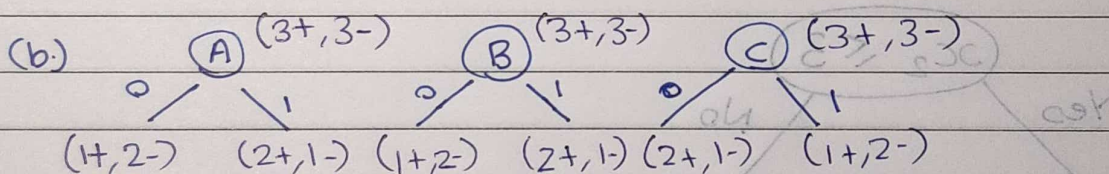 (b.) A (3+,3-) B (3+,3-) C (3+,3-)
0 1 0 1 0 1
(1+,2-) (2+,1-) (1+,2-) (2+,1-) (2+,1-) (1+,2-)